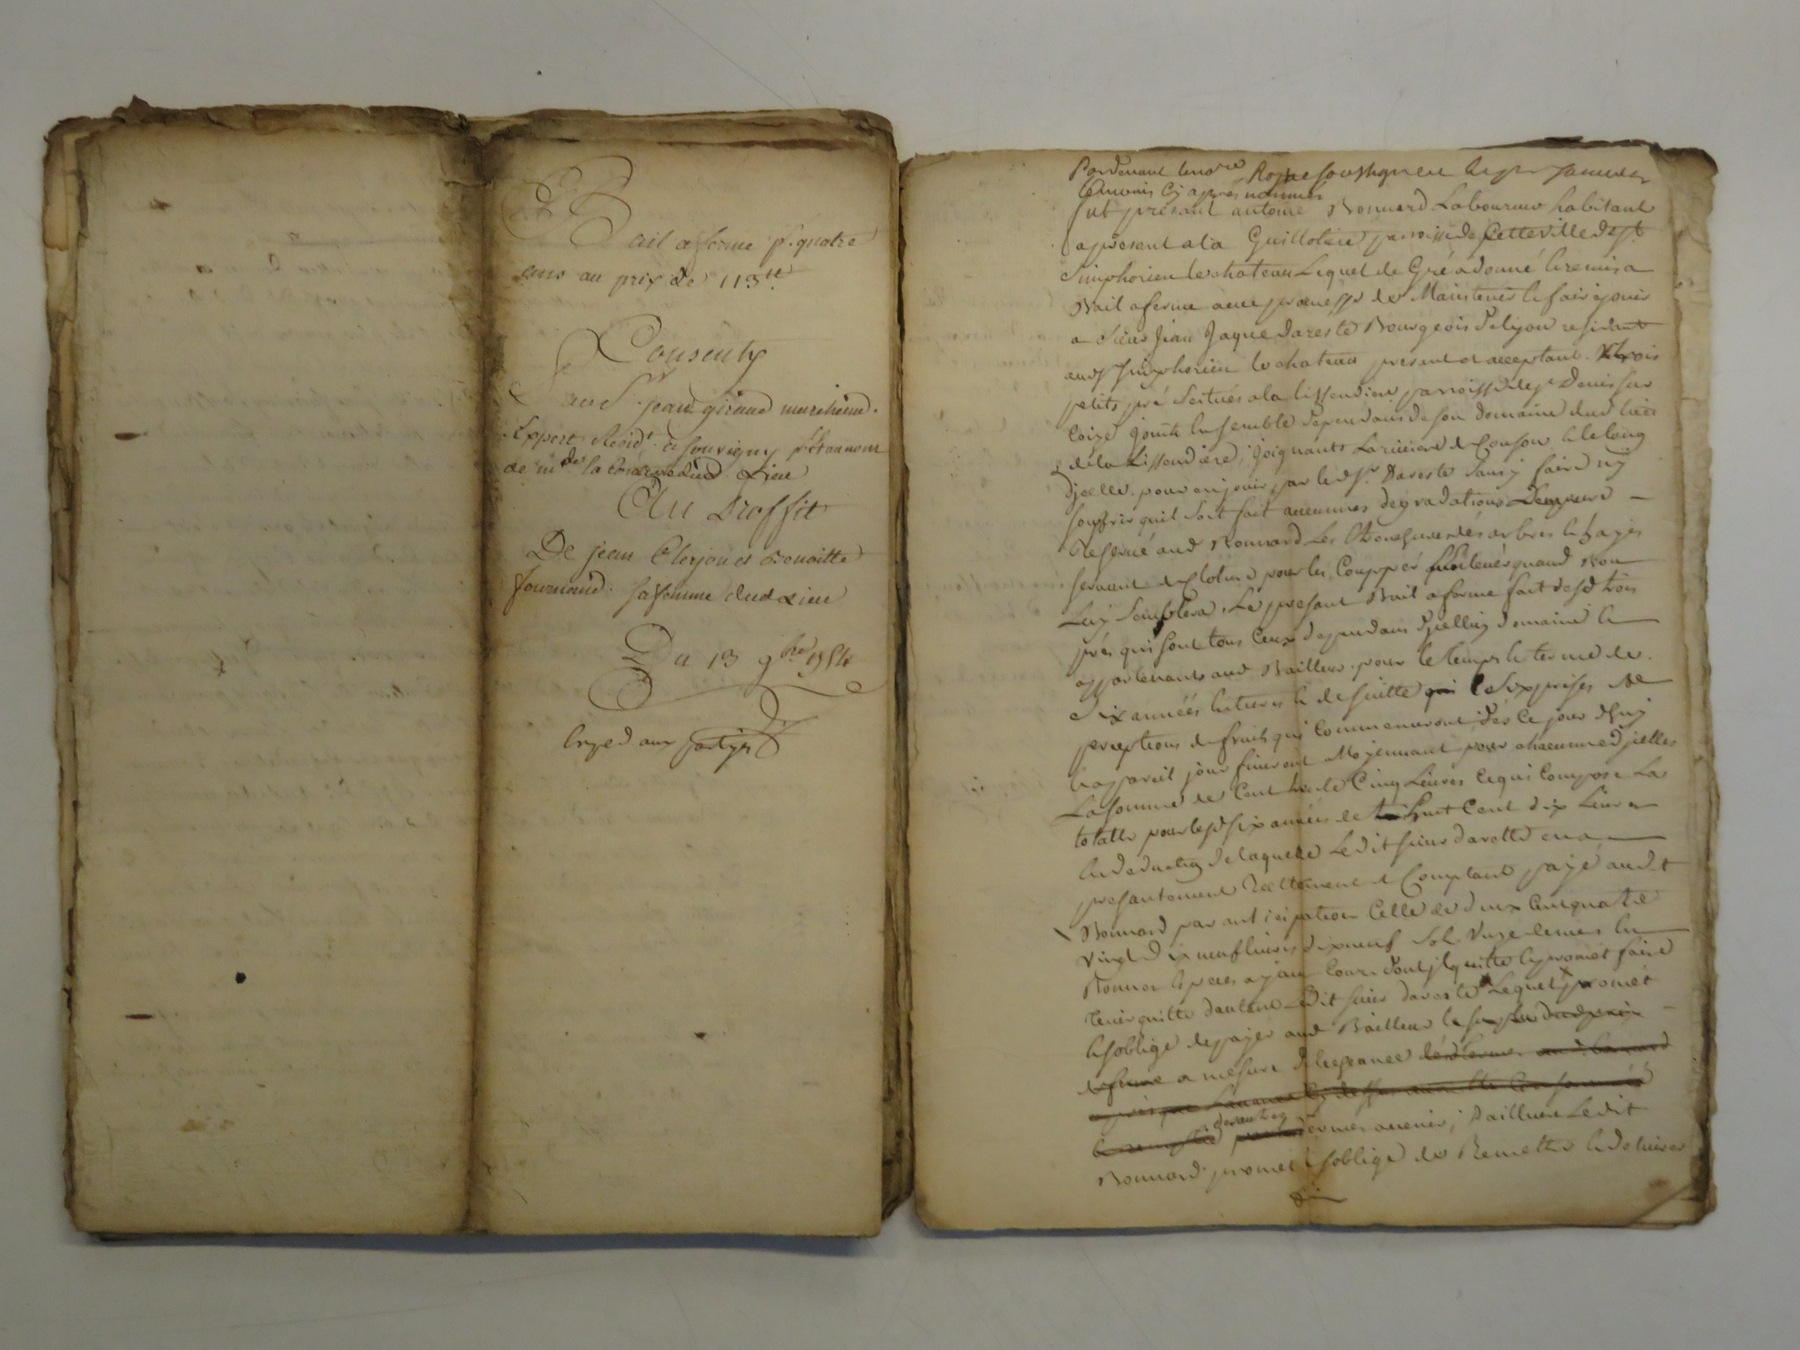 Bail a ferme pr. quatre
ans au prix de 113tt
Consenty
par Sr. jean giraud marchand.
Expert Résidt. a souvigny
de mde la
Au Proffit
De jean Clerjon et Benoitte
fournand. sa femme dud Lieu
Du 13 9bre
Exped aux partyes
Pardevant le nore Royal soussigné et
temoins cy apres nommés
fut présant antoine Bonnard Laboureur habitant
apresent a la Guillotiere parroisse de cette ville de st
Simphorien le chateau Lequel de Gré a donné & remis a
Bail a ferme avec promesse de Maintenir & faire jouir
a Sieur Jean Jaque dareste Bourgeois de lyon residant
aud st Simphorien le chateau present et acceptant. trois
petits pré Scitués a la lissondiere parroisse de st Denis sur
Coize joints Ensemble dependants de son domaine dud lieu
de la Lissondiere, joignants La riviere de Couson & le long
djcelle. pour en jouir par led sr. Dareste sans y faire ny
souffrir quil soit fait aucunnes degradations
Reservé aud Bonnard Les arbres & hayes
servant de cloture pour les Coupper & Enlever quand Bon
Luy Semblera, Le present Bail a ferme fait desd trois
prés qui sont tous ceux dependans djcelluy domaine &
appartenants aud Bailleur. pour le temps & terme de
Six années Entieres & de suitte Six prises &
perceptions de fruits qui Commenceront dés ce jour dhuy
& a pareil jour finiront Moyennant pour chacunne djcelles
La somme de Cent trente Cinq Livres Ce qui Compose La
totalle pour lesd six années de huit Cent dix Livres
En deduction de laquelle Ledit sieur dareste en a
presantement Reellement & Comptant payé aud.t
Bonnard par anticipation Celle de deux Cent quatre
vingt dix neuf livres dixneuf Sols onze deniers En
Bonnes Especes ayant Cours dont jl quitte & promet faire
tenir quitte dautant Ledit sieur dareste Lequel promet
& soblige de payer aud Bailleur le
a mesure decheance
termes avenir, Dailleurs Ledit
Bonnard promet & soblige de Remettre